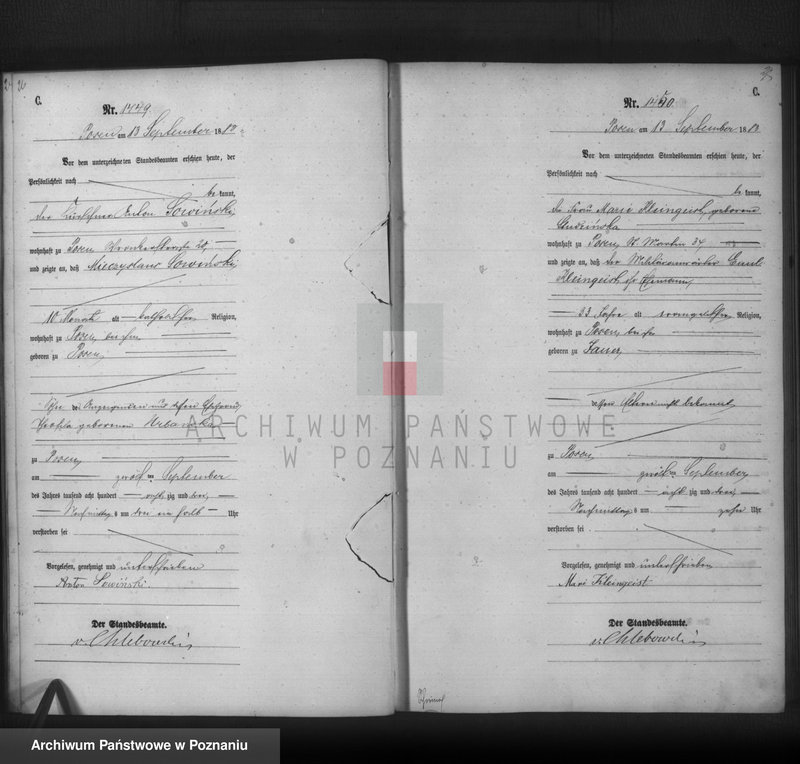 C.
Nr. 1449
Posen am 13 September 18
Vor dem unterzeichneten Standesbeamten erschien heute, der
Persönlichkeit nach
be kannt,
der Anton Sowiński,
wohnhaft zu Posen
und zeigte an, daß Mieczyslaus Sowiński,
10 Monate alt katholischer Religion,
wohnhaft zu Posen bei ihm
geboren zu Posen,
des Anzeigenden und dessen Ehefrau
geborenen
zu Posen,
am zwölften September
des Jahres tausend acht hundert achtzig und drei,
Nachmittags um drei ein halb Uhr
verstorben sei
Vorgelesen, genehmigt und unterschrieben
Anton Sowiński.
Der Standesbeamte.
v. Chlebowski
C.
Nr. 1450
Posen am 13 September 18
Vor dem unterzeichneten Standesbeamten erschien heute, der
Persönlichkeit nach
be kannt,
die Frau Marie Kleingeist, geborene
wohnhaft zu Posen, St. Martin 34
und zeigte an, daß der Militäranwärter Emil
Kleingeist, ihr Ehemann,
33 Jahre alt evangelischer Religion,
wohnhaft zu Posen bei ihr
geboren zu Jauer,
dessen Eltern nicht bekannt,
zu Posen,
am zwölften September
des Jahres tausend acht hundert achtzig und drei,
Nachmittags um zehn Uhr
verstorben sei
Vorgelesen, genehmigt und unterschrieben
Marie Kleingeist
Der Standesbeamte.
v. Chlebowski
ARCHIWUM PAŃSTWOWE
W POZNANIU
Archiwum Państwowe w Poznaniu